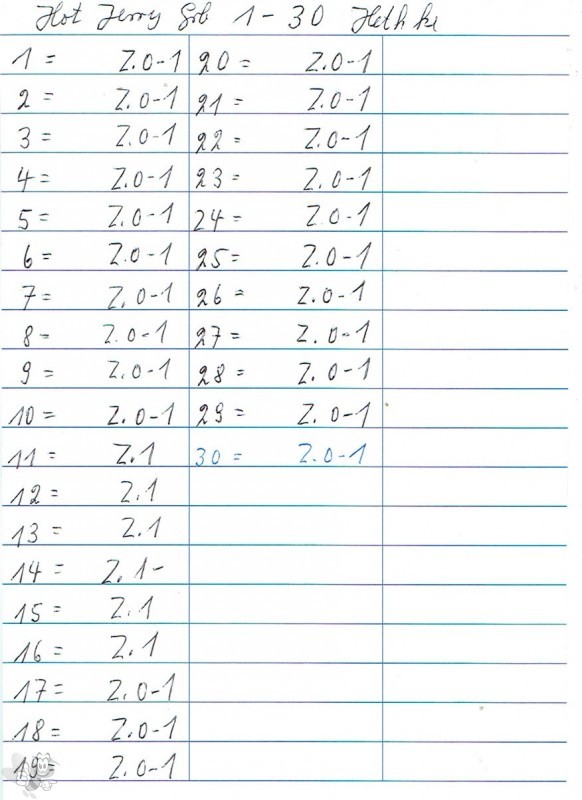 Hot Jerry Grb 1-30 Hethke
1 = Z.0-1
2 = Z.0-1
3 = Z.0-1
4 = Z.0-1
5 = Z.0-1
6 = Z.0-1
7 = Z.0-1
8 = Z.0-1
9 = Z.0-1
10 = Z.0-1
11 = Z.1
12 = Z.1
13 = Z.1
14 = Z.1-
15 = Z.1
16 = Z.1
17 = Z.0-1
18 = Z.0-1
19 = Z.0-1
20 = Z.0-1
21 = Z.0-1
22 = Z.0-1
23 = Z.0-1
24 = Z.0-1
25 = Z.0-1
26 = Z.0-1
27 = Z.0-1
28 = Z.0-1
29 = Z.0-1
30 = Z.0-1